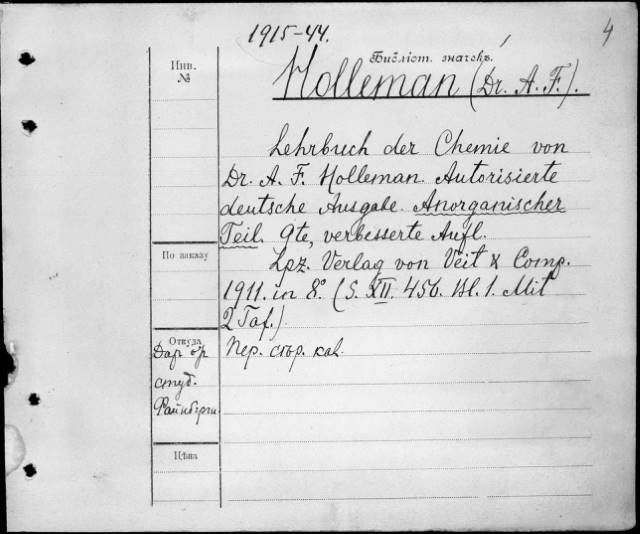 1915-44.
4
Библіот. значокъ.
Инв.
№
Holleman (Dr. A. F.).
Lehrbuch der Chemie von
Dr. A. F. Holleman. Autorisierte
deutsche Ausgabe. Anorganischer
Teil. 9te, verbesserte Aufl.
По заказу
Lpz. Verlag von Veit & Comp.
1911. in 8º. (S. XII. 456. Bl. 1. Mit
2 Taf.)
Откуда
Пер. стор. каб.
Дар от
студ.
Цѣна